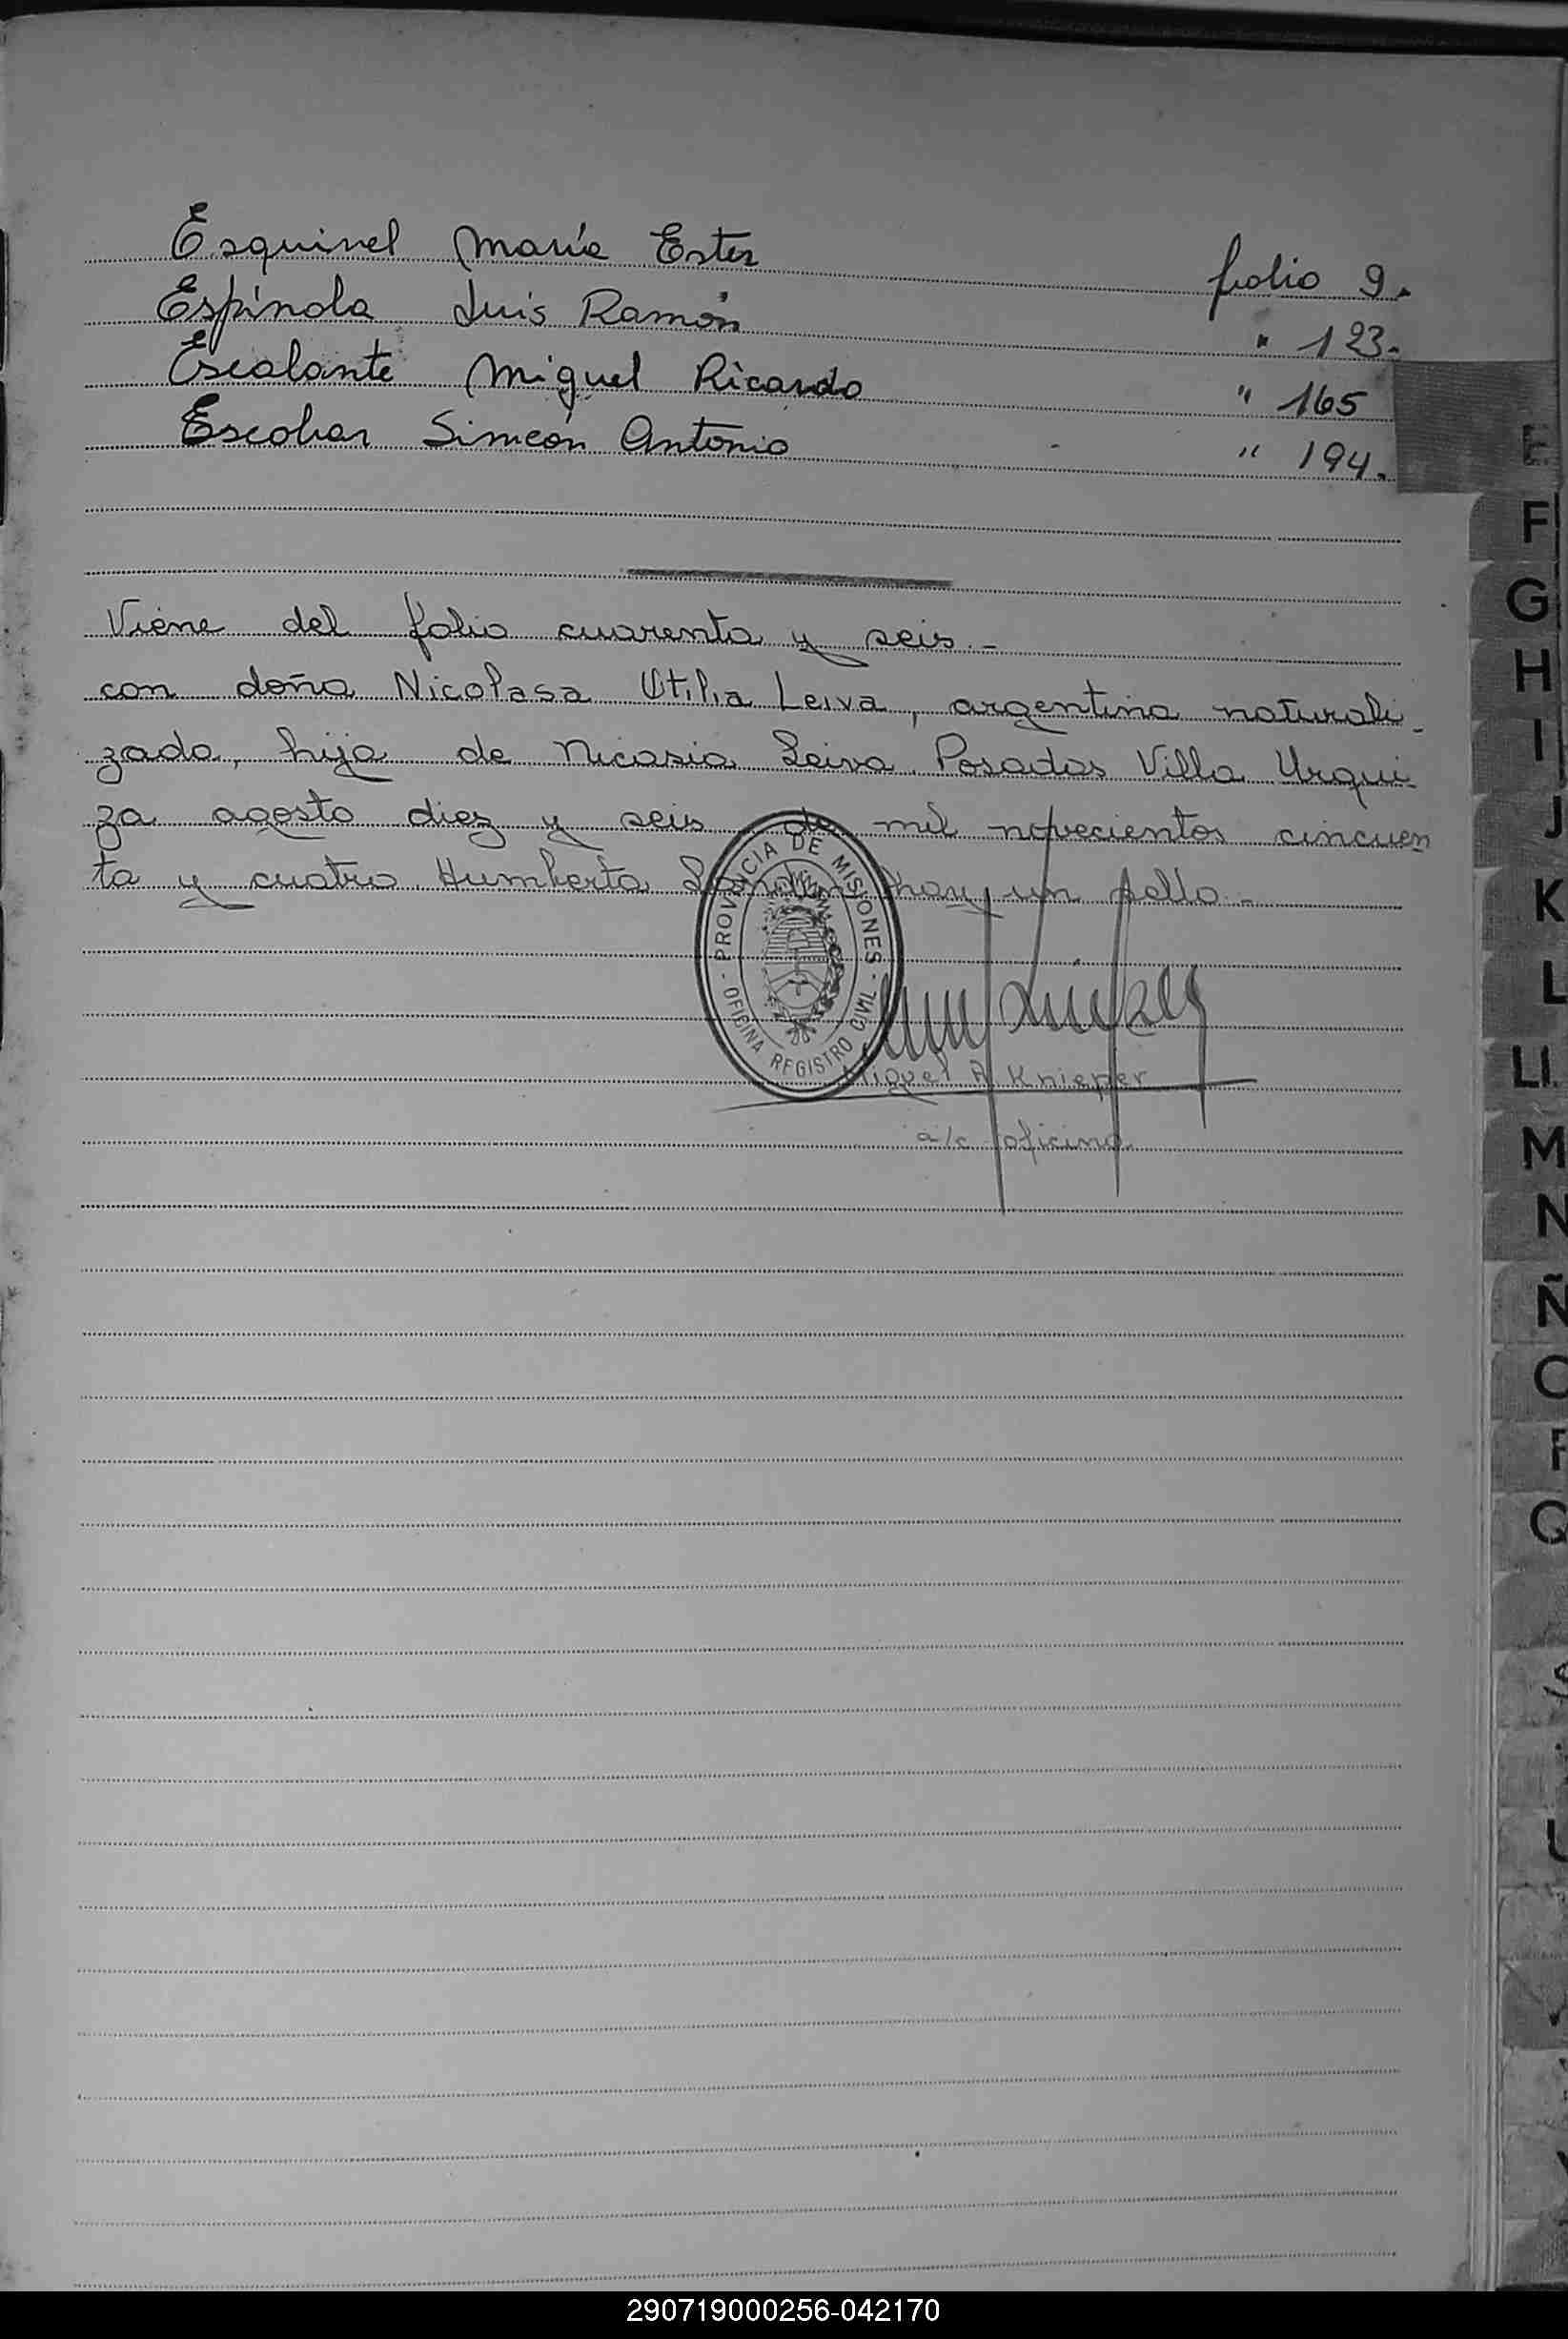 Esquivel María Ester folio 9.
Espínola Luis Ramón " 123.
Escalante Miguel Ricardo " 165
Escobar Simeón Antonio " 194.
Viene del folio cuarenta y seis.-
con doña Nicolasa Otilia Leiva, argentina naturali
zada, hija de Nicasia Leiva. Posadas Villa Urqui
za agosto diez y seis de mil novecientos cincuen
ta y cuatro. Humberto hay un sello.-
PROVINCIA DE MISIONES
- OFICINA REGISTRO CIVIL -
Miguel A Knieper
a/c oficina
E
F
G
H
I
J
K
L
LL
M
N
Ñ
O
P
Q
S
U
290719000256-042170